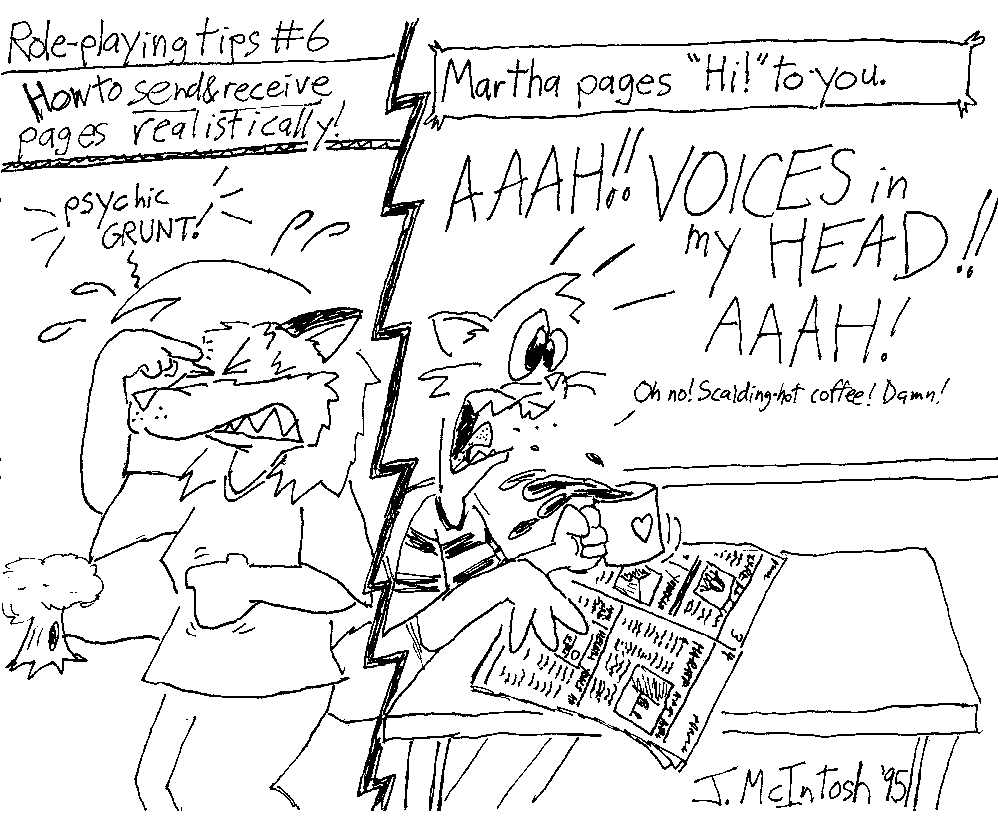 Role-playing tips #6
How to send & receive
pages realistically!
psychic
GRUNT!
Martha pages "Hi!" to you.
AAAH!! VOICES in
my HEAD!!
AAAH!
Oh no! Scalding-hot coffee! Damn!
J. McIntosh '95